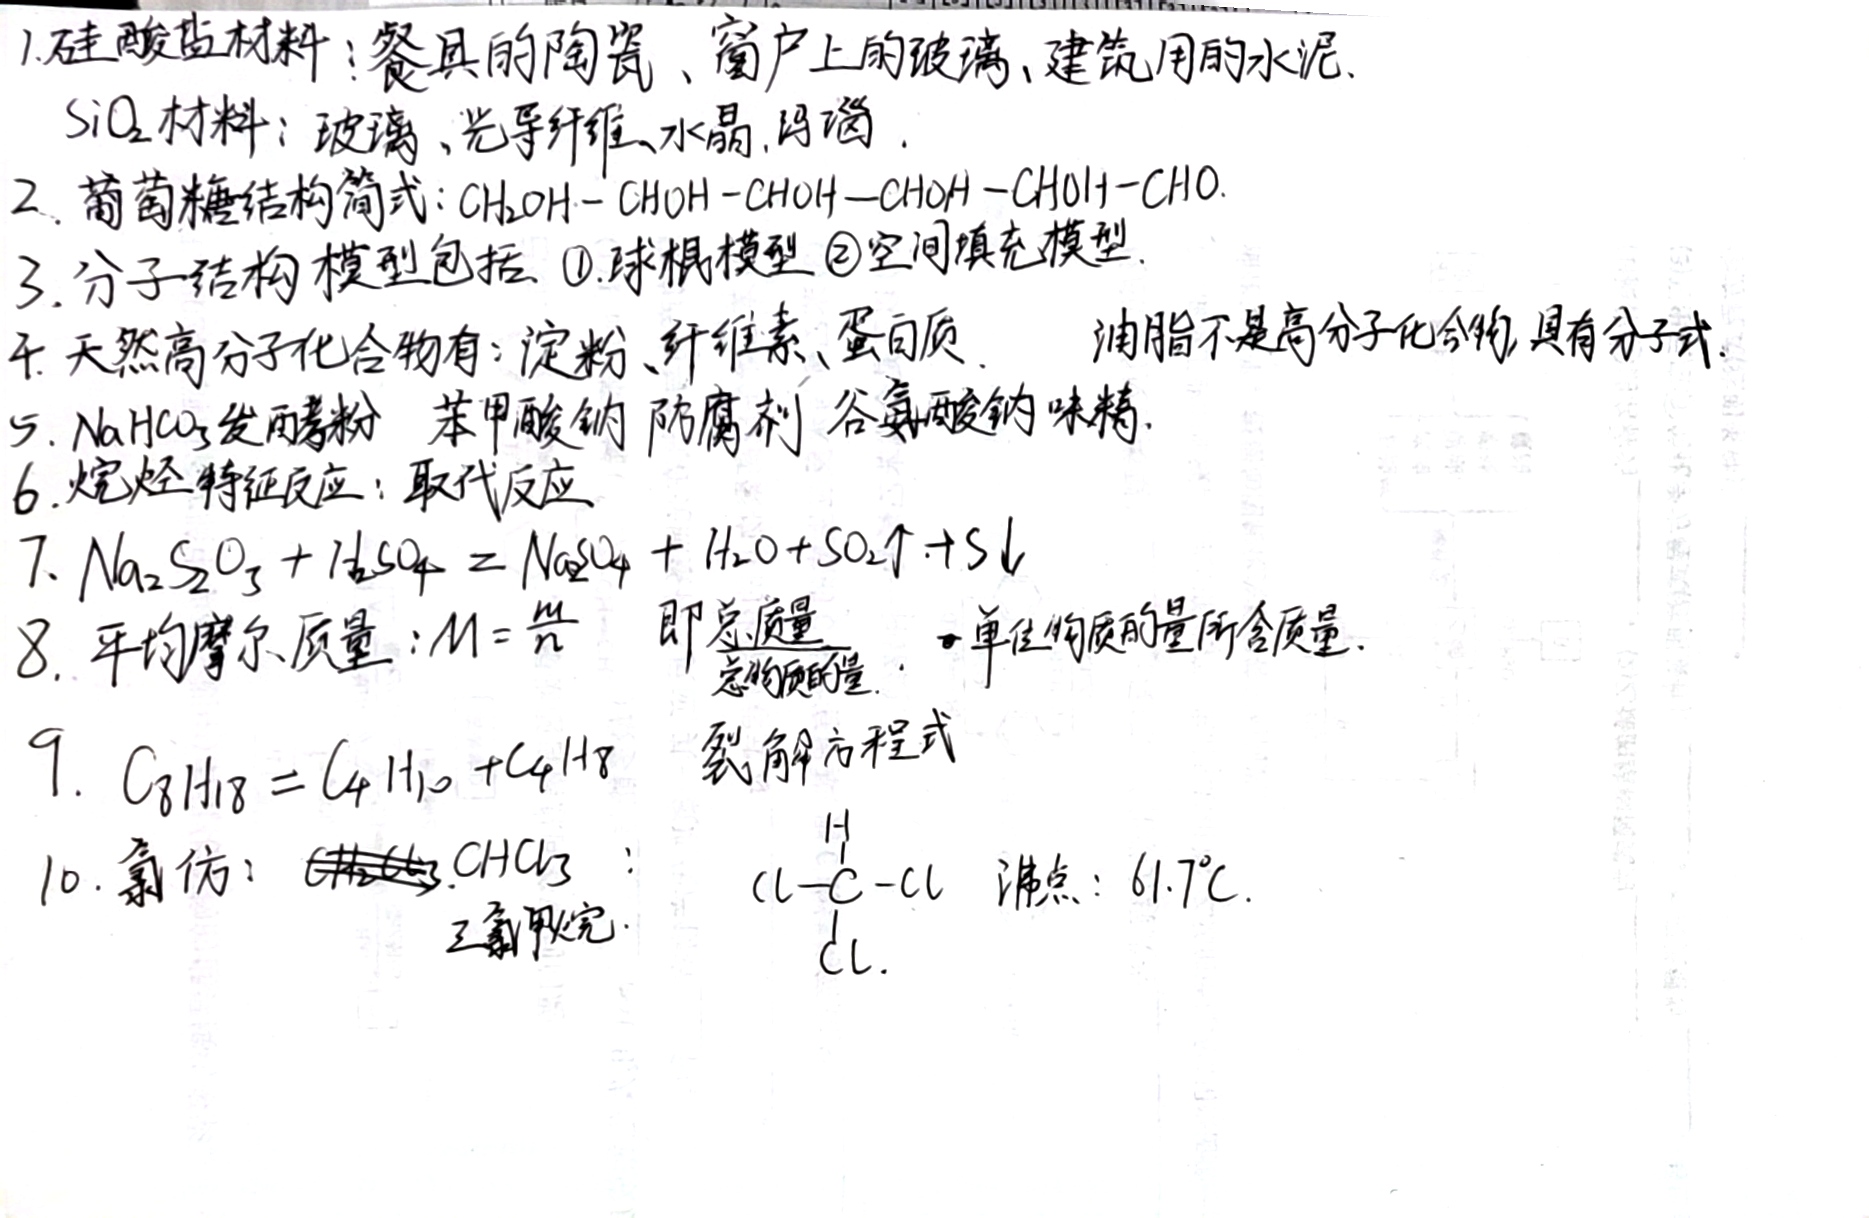 1.硅酸盐材料:餐具的陶瓷、窗户上的玻璃、建筑用的水泥.
SiO₂材料:玻璃、光导纤维、水晶、玛瑙.
2.葡萄糖结构简式:CH₂OH-CHOH-CHOH-CHOH-CHOH-CHO.
3.分子结构模型包括 ①.球棍模型 ②空间填充模型.
4.天然高分子化合物有:淀粉、纤维素、蛋白质. 油脂不是高分子化合物,具有分子式.
5.NaHCO₃发酵粉 苯甲酸钠 防腐剂 谷氨酸钠味精.
6.烷烃特征反应:取代反应
7.Na₂S₂O₃+H₂SO₄=Na₂SO₄+H₂O+SO₂↑+S↓
8.平均摩尔质量:M=m/n 即总质量/总物质的量. 单位物质的量所含质量.
9.C₈H₁₈=C₄H₁₀+C₄H₈ 裂解方程式
H
10.氯仿: CHCl₃: Cl-C-Cl 沸点:61.7℃.
三氯甲烷. Cl.